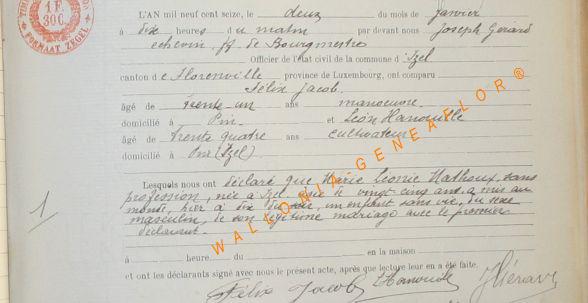 TIMBRE
1 F.
30 C.
FORMAAT ZEGEL
L'AN mil neuf cent seize, le deux du mois de janvier
à dix heures du matin par devant nous Joseph Gérard
échevin ff de Bourgmestre
Officier de l'état civil de la commune d'Izel
canton de Florenville province de Luxembourg, ont comparu
Félix Jacob.
âgé de trente un ans manoeuvre.
domicilié à Pin et Léon Hanouille
âgé de trente quatre ans cultivateur
domicilié à Pin (Izel)
Lesquels nous ont déclaré que Marie Léonie Mathoux, sans
profession, née à Izel âgée de vingt cinq ans a mis au
monde, hier à dix du soir, un enfant sans vie, du sexe
masculin, de son légitime mariage avec le premier
déclarant.
1
à heure du en la maison
et ont les déclarants signé avec nous le présent acte, après que lecture leur en a été faite,
Félix Jacob LHanouille JGérard
WALLONIA GENEAFLOR ®